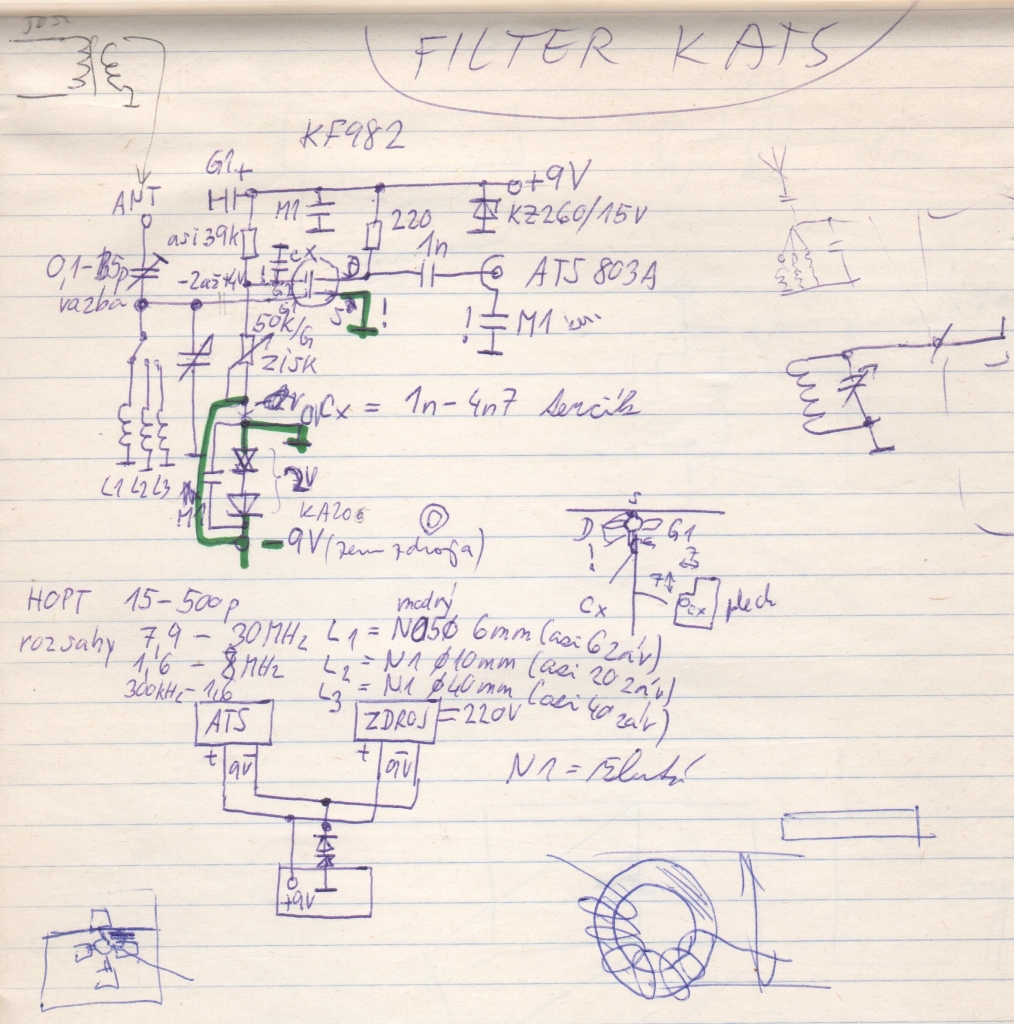 FILTER K ATS
KF982
G1+
+9V
ANT
M1
220
KZ260/15V
asi 39k
CX
1n
0,1-15p
-2až+4V
D
ATS 803A
väzba
G2
G1
S
!
!
!
M1
50k/G
ZISK
0V
Cx = 1n-4n7
L1 L2 L3
2V
M1
KA206
S
-9V (zem zdroja)
D
G1
!
7
Cx
Cx
plech
HOPT 15-500p
modrý
rozsahy 7,9 - 30MHz L1 = N05 Ø 6mm (asi 6 záv)
1,6 - 8MHz L2 = N1 Ø10mm (asi 20 záv)
300kHz-1,6 L3 = N1 Ø40mm (asi 40 záv)
ATS
ZDROJ = 220V
+ 9V -
+ 9V -
N1 = žltá
+9V